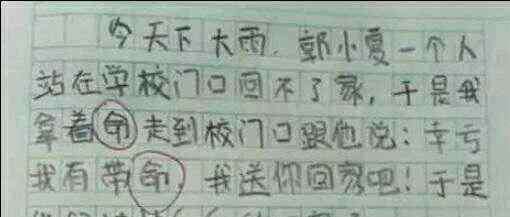 今天下大雨，郭小夏一个人
站在学校门口回不了家，于是我
拿着命走到校门口跟他说：幸亏
我有带命，我送你回家吧！于是